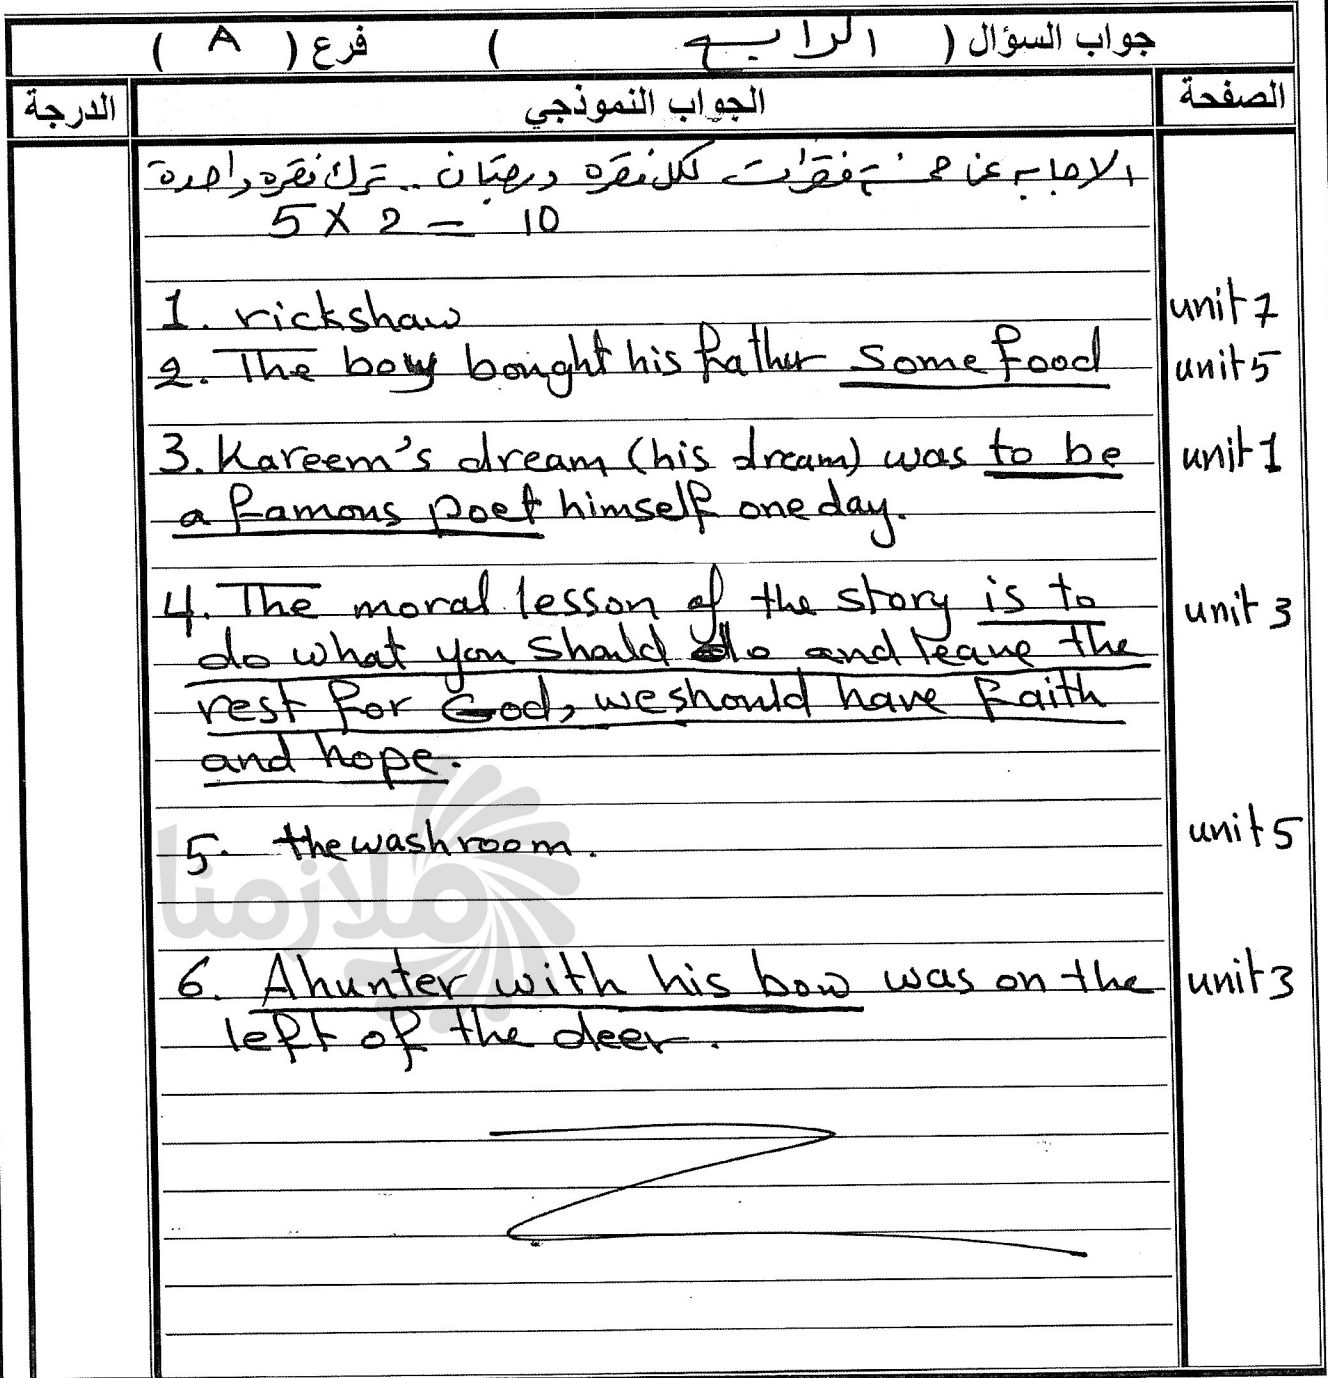 جواب السؤال ( الرابع ) فرع ( A )
الصفحة الجواب النموذجي الدرجة
الاجابه عن خمسة فقرات لكل فقره درجتان .. ترك فقره واحدة
5 X 2 = 10
1. rickshaw unit 7
2. The boy bought his father some food unit 5
3. Kareem's dream (his dream) was to be unit 1
a famous poet himself one day.
4. The moral lesson of the story is to unit 3
do what you should do and leave the
rest for God, we should have faith
and hope.
5. the washroom. unit 5
ملازمنا
6. A hunter with his bow was on the unit 3
left of the deer.